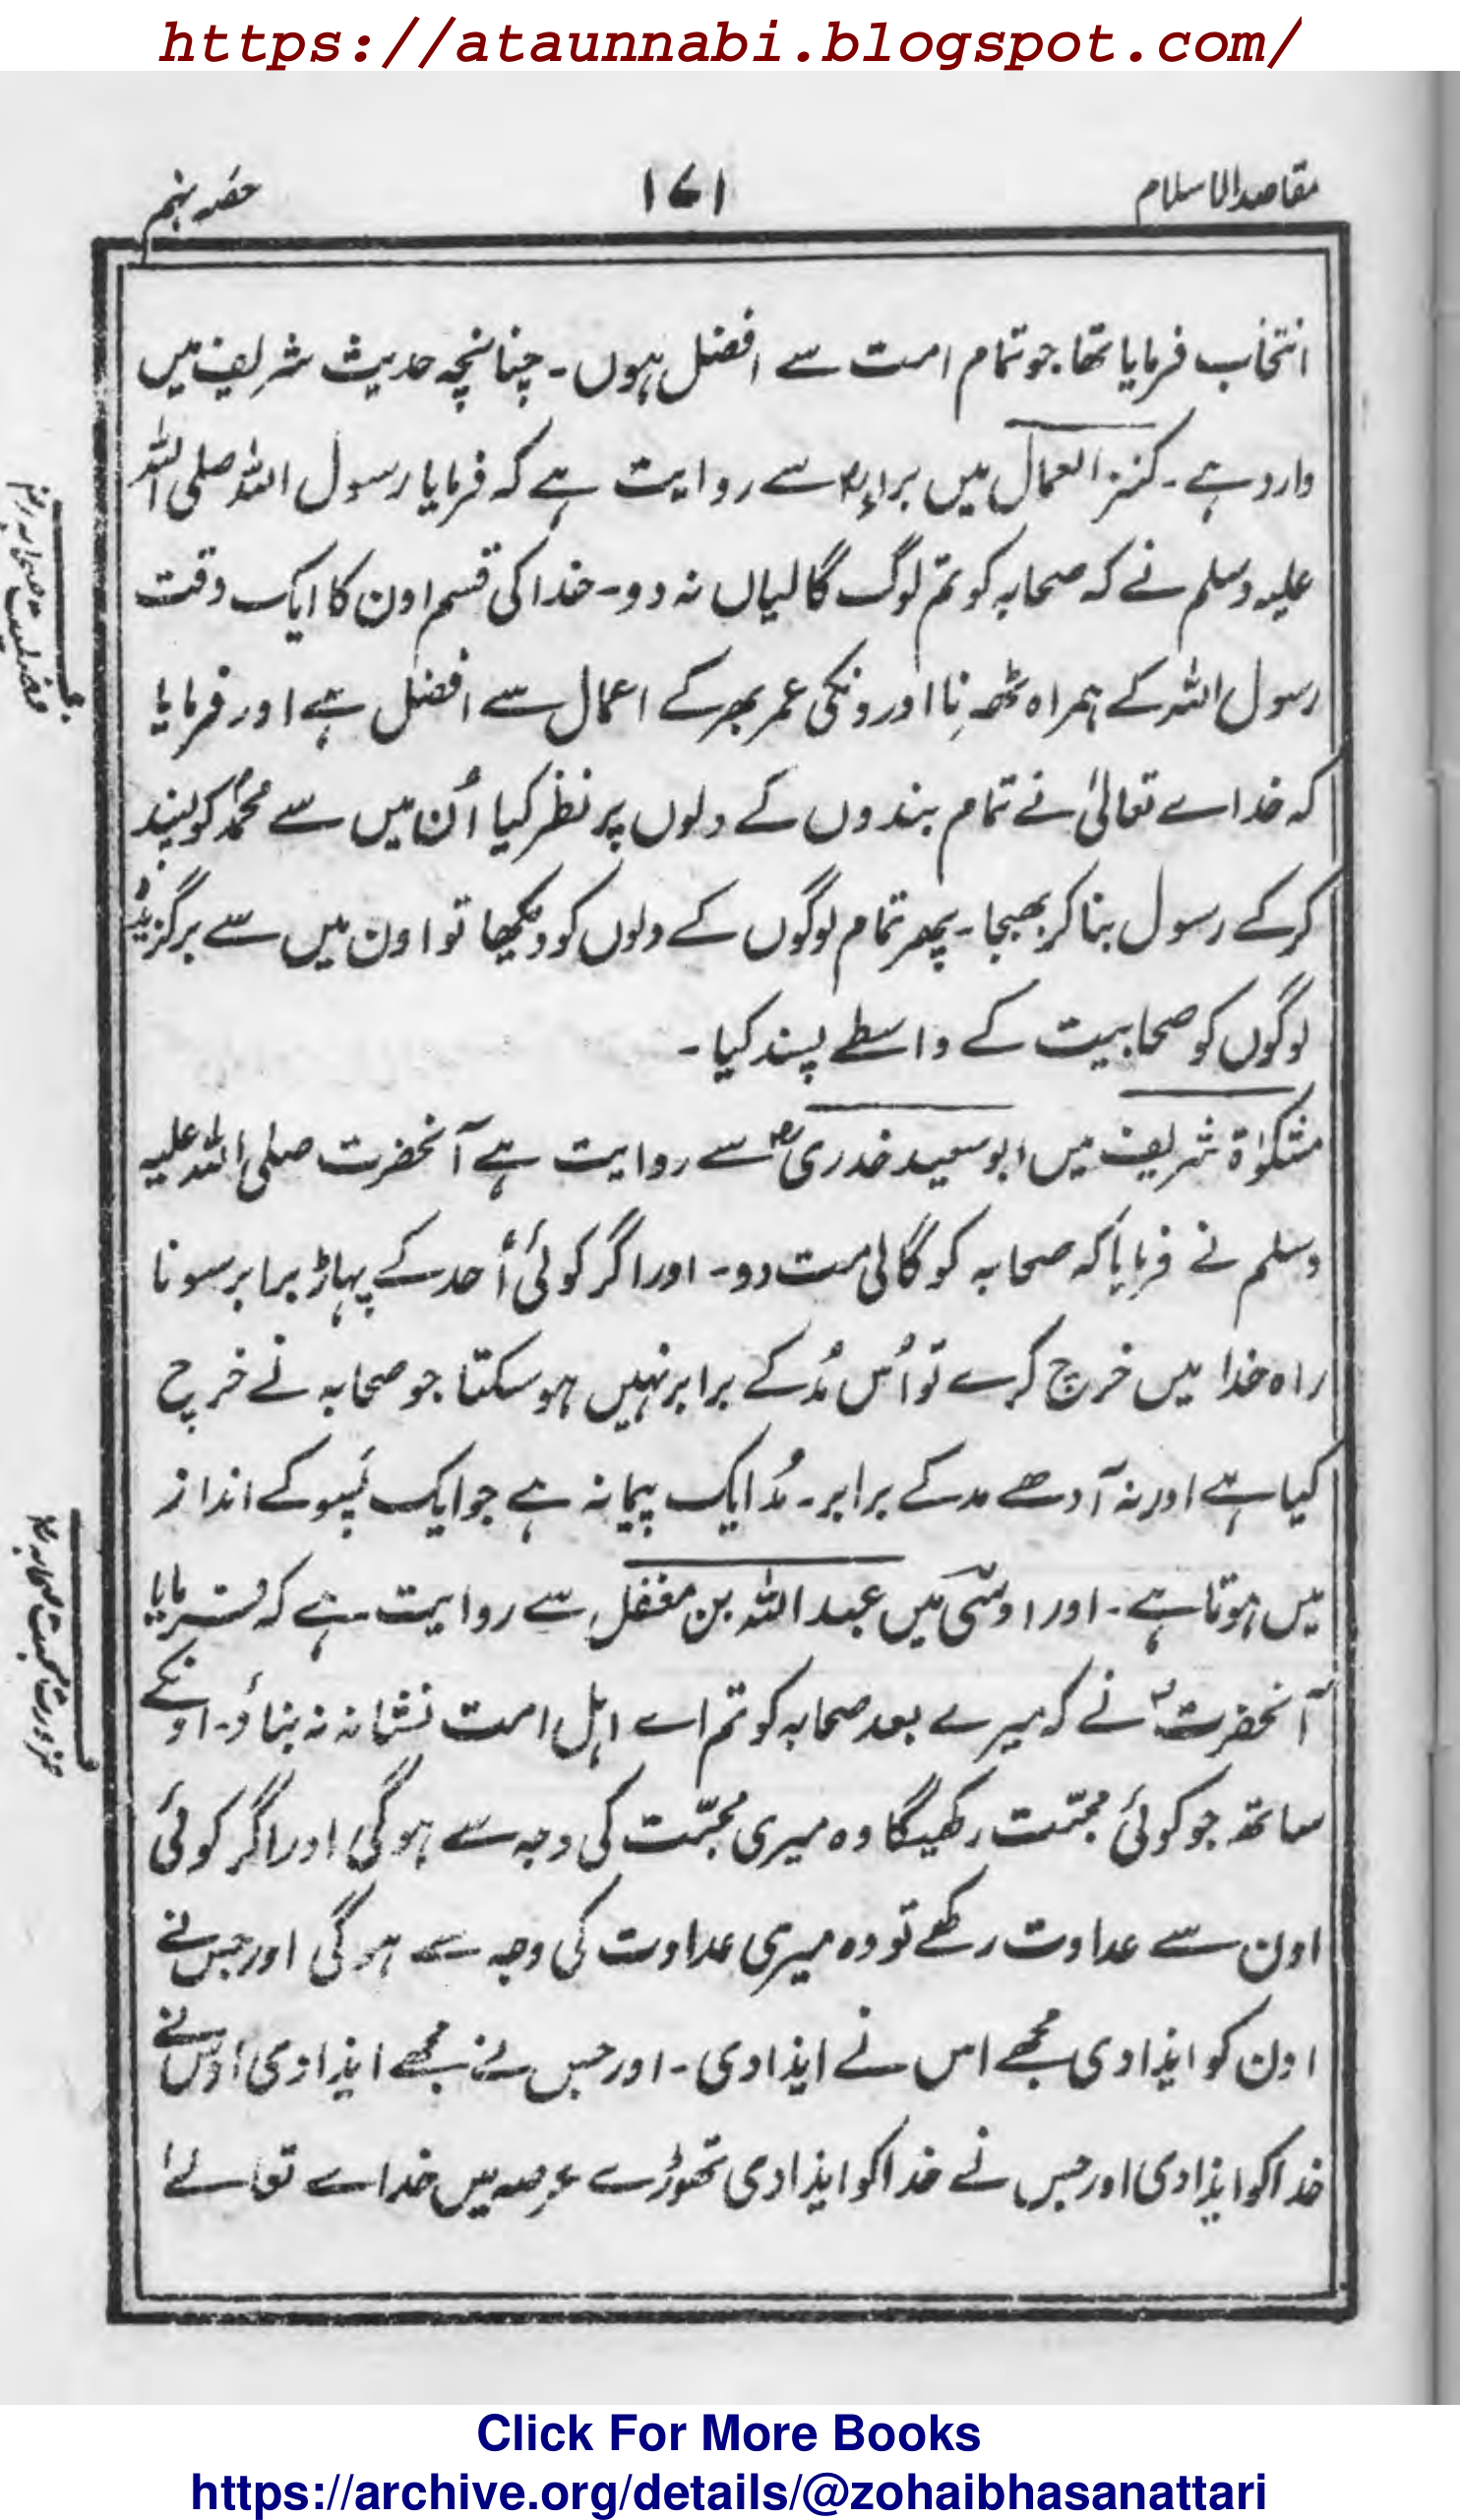 https://ataunnabi.blogspot.com/
مقاصد الاسلام
۱۷۱
حصّہ نہم
انتخاب فرمایا تھا جو تمام امت سے افضل ہوں ۔ چنانچہ حدیث شریف میں
وارد ہے ۔ کنز العمال میں براءؓ سے روایت ہے کہ فرمایا رسول اللہ صلی اللہ
علیہ وسلم نے کہ صحابہ کو تم لوگ گالیاں نہ دو ۔ خدا کی قسم اون کا ایک وقت
رسول اللہ کے ہمراہ ٹھہرنا اورونکی عمر بھر کے اعمال سے افضل ہے اور فرمایا
کہ خداے تعالیٰ نے تمام بندوں کے دلوں پر نظر کیا اُن میں سے محمدؐ کو پسند
کر کے رسول بنا کر بھیجا ۔ پھر تمام لوگوں کے دلوں کو دیکھا تو اون میں سے برگزیدہ
لوگوں کو صحابیت کے واسطے پسند کیا ۔
مشکوٰۃ شریف میں ابو سعید خدریؓ سے روایت ہے آنحضرت صلی اللہ علیہ
وسلم نے فرمایا کہ صحابہ کو گالی مت دو ۔ اور اگر کوئی اُحد کے پہاڑ برابر سونا
راہ خدا میں خرچ کرے تو اُس مُد کے برابر نہیں ہوسکتا جو صحابہ نے خرچ
کیا ہے اور نہ آدھے مد کے برابر ۔ مُد ایک پیمانہ ہے جو ایک پَسو کے انداز
میں ہوتا ہے ۔ اور اوسی میں عبد اللہ بن مغفل سے روایت ہے کہ فرمایا
آنحضرتؐ نے کہ میرے بعد صحابہ کو تم اے اہل امت نشانہ نہ بناؤ ۔ اونکے
ساتھ جو کوئی محبّت رکھیگا وہ میری محبّت کی وجہ سے ہوگی اور اگر کوئی
اون سے عداوت رکھے تو وہ میری عداوت کی وجہ سے ہوگی اور جس نے
اون کو ایذا دی مجھے اس نے ایذا دی ۔ اور جس نے مجھے ایذا دی اوس نے
خدا کو ایذا دی اور جس نے خدا کو ایذا دی تھوڑے عرصہ میں خداے تعالےٰ
فضلیت صحابہ رضؓ
ضرورت محبت صحابہؓ
Click For More Books
https://archive.org/details/@zohaibhasanattari